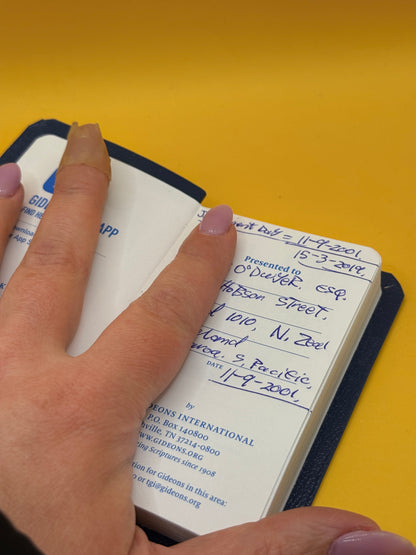 GID
FIND
APP
wnload
App S
Day = 11-9-2001
15-3-2019
Presented to
O'DWYER. ESQ.
Hobson STREET,
1010, N. Zeal
land
S. Pacific,
DATE
11-9-2001.
by
GIDEONS INTERNATIONAL
P.O. Box 140800
hville, TN 37214-0800
WW.GIDEONS.ORG
ting Scriptures since 1908
rmation for Gideons in this area:
0 or tgi@gideons.org